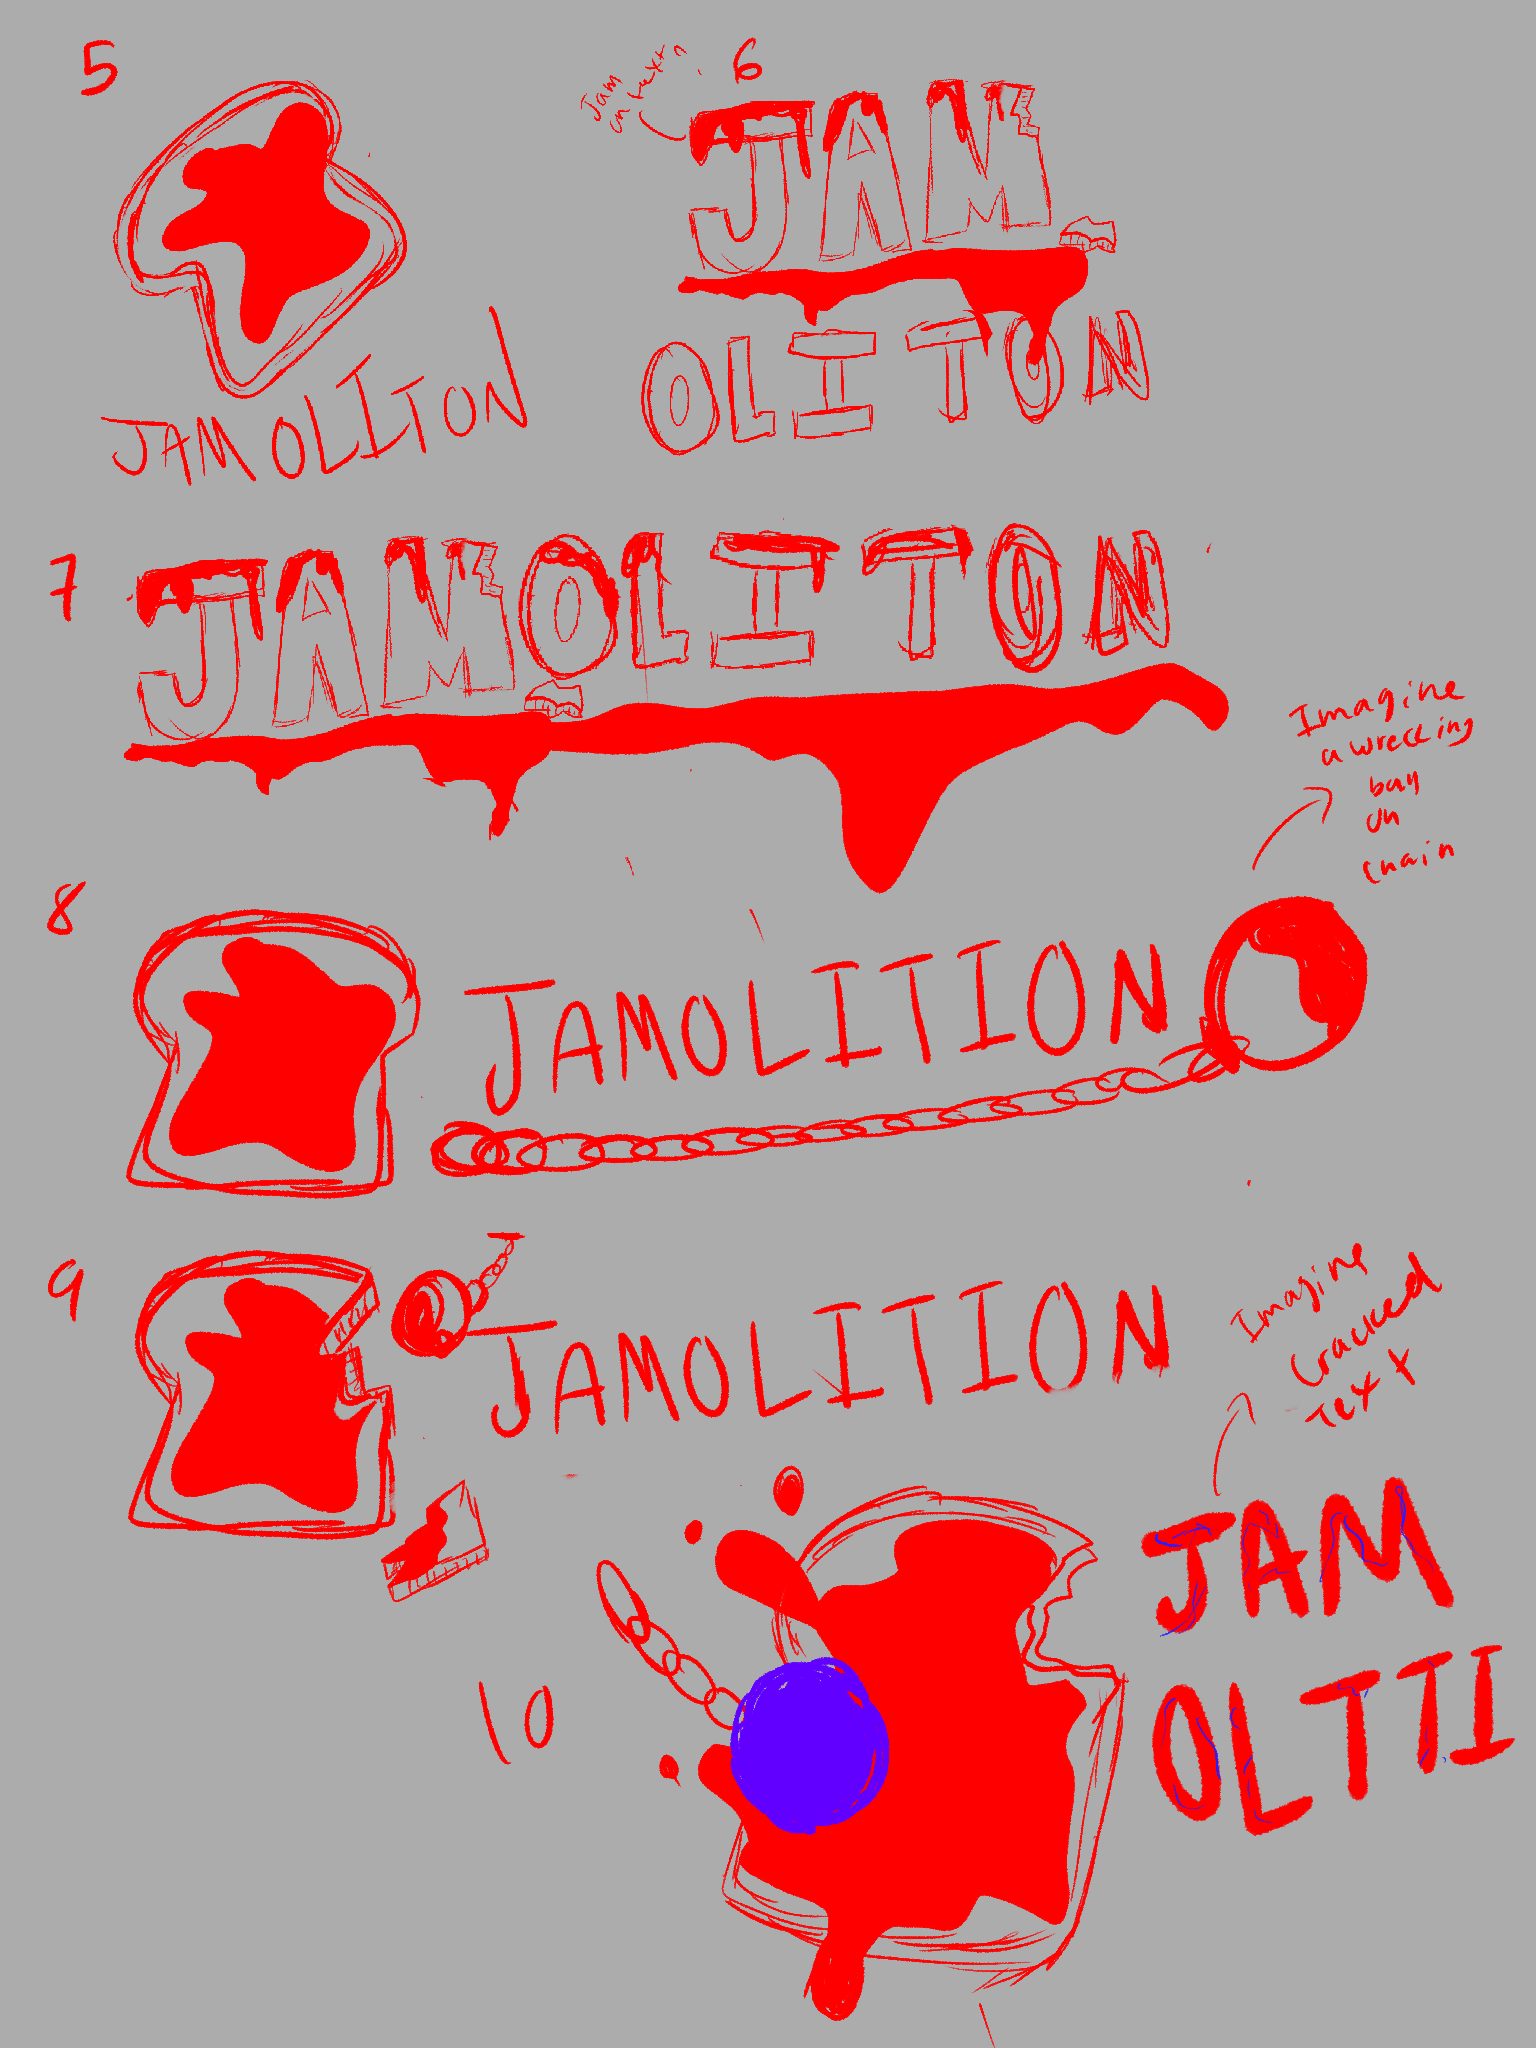 5
JAMOLITON
6
Jam
on text
JAM
OLITON
7
JAMOLITON
Imagine
a wrecking
ball
on
chain
8
JAMOLITION
9
JAMOLITION
Imagine
Cracked
Text
10
JAM
OLTII